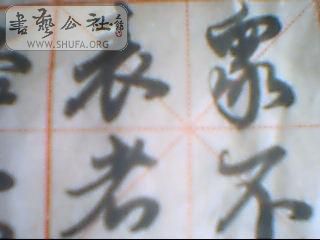 書藝公社
WWW.SHUFA.ORG
眾不
衣者